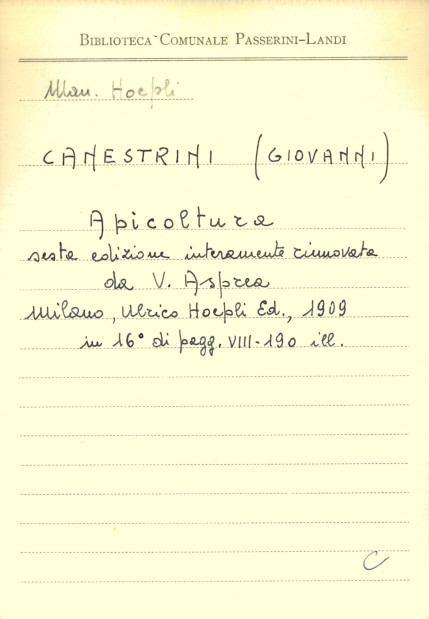 BIBLIOTECA COMUNALE PASSERINI-LANDI
Man. Hoepli
CANESTRINI (GIOVANNI)
Apicoltura
sesta edizione interamente rinnovata
da V. Asprea
Milano, Ulrico Hoepli Ed., 1909
in 16° di pagg. VIII-190 ill.
C